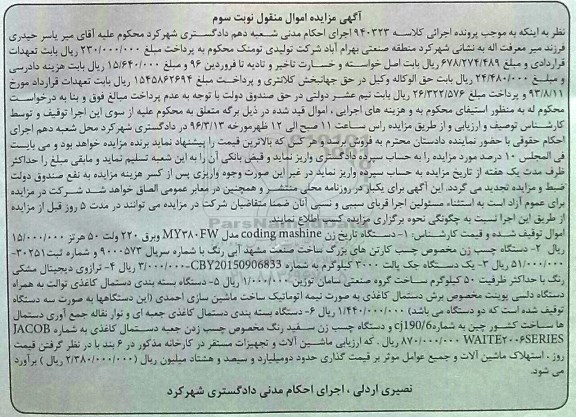 آگهی مزایده اموال منقول نوبت سوم
نظر به اینکه به موجب پرونده اجرائی کلاسه ۹۴۰۳۲۳ اجرای احکام مدنی شعبه دهم دادگستری شهرکرد محکوم علیه آقای میر یاسر حیدری
فرزند میر معرفت اله به نشانی شهرکرد منطقه صنعتی بهرام آباد شرکت تولیدی تومنک محکوم به پرداخت مبلغ ۲۳۰/۰۰۰/۰۰۰ ریال بابت تعهدات
قراردادی و مبلغ ۶۷۸/۲۷۴/۴۸۹ ریال بابت اصل خواسته و خسارت تاخیر و تادیه تا فروردین ۹۶ و مبلغ ۱۵/۶۴۰/۰۰۰ ریال بابت هزینه دادرسی
و مبلغ ۲۴/۴۸۰/۰۰۰ ریال بابت حق الوکاله وکیل در حق جهانبخش کلانتری و پرداخت مبلغ ۱۵۴۵۸۶۲۶۹۴ ریال بابت تعهدات قرارداد مورخ
۹۳/۸/۱۱ و پرداخت مبلغ ۲۶/۳۲۳/۵۷۶ ریال بابت نیم عشر دولتی در حق صندوق دولت با توجه به عدم پرداخت مبالغ فوق و بنا به درخواست
محکوم له به منظور استیفای محکوم به و هزینه های اجرایی ، اموال قید شده در ذیل برگه متعلق به محکوم علیه از سوی این اجرا توقیف و توسط
کارشناس توصیف و ارزیابی و از طریق مزایده راس ساعت ۱۱ صبح الی ۱۲ ظهر مورخه ۹۶/۳/۱۳ در دادگستری شهرکرد محل شعبه دهم اجرای
احکام حقوقی با حضور نماینده دادستان محترم به فروش رسد و هر کس که بالاترین قیمت را پیشنهاد نماید برنده مزایده خواهد بود و می بایست
فی المجلس ۱۰ درصد مورد مزایده را به حساب سپرده دادگستری واریز نماید و قبض بانکی آن را به این شعبه تسلیم نماید و مابقی مبلغ را حداکثر
ظرف مدت یک هفته از تاریخ مزایده به حساب سپرده واریز نماید در غیر این صورت وجوه واریزی پس از کسر هزینه مزایده به نفع صندوق دولت
ضبط و مزایده تجدید می گردد. این آگهی برای یکبار در روزنامه محلی منتشر و همچنین در معابر عمومی الصاق خواهد شد. شرکت در مزایده
برای عموم آزاد است به استثناء مسئولین اجرا قربای سببی و نسبی آنان ضمنا متقاضیان شرکت در مزایده می توانند در مدت ۵ روز قبل از مزایده
از طریق این اجرا نسبت به چگونگی نحوه برگزاری مزایده کسب اطلاع نمایند.
اموال توقیف شده و قیمت کارشناس: ۱- دستگاه تاریخ زن coding mashine مدل MY۳۸۰FW وبرق ۲۲۰ ولت ۵۰ هرتز ۱۵/۰۰۰/۰۰۰
ریال ۲- دستگاه چسب زن مخصوص چسب کارتن های بزرگ ساخت صنعت مشهد آبی رنگ با شماره سریال ۹۰۰۰۵۷۳ و شماره ثبت ۳۰۲۵۱-
۵۱/۰۰۰/۰۰۰ ریال ۳- یک دستگاه جک پالت ۳۰۰۰ کیلوگرم به شماره CBY20150906833-۳/۰۰۰/۰۰۰ ریال ۴- ترازوی دیجیتال مشکی
رنگ با حداکثر ظرفیت ۵۰ کیلوگرم ساخت گروه صنعتی سامان توزین ۱/۰۰۰/۰۰۰ ریال ۵- دستگاه بسته بندی دستمال کاغذی توالت به همراه
دستگاه دلسی پوینت مخصوص برش دستمال کاغذی به صورت نیمه اتوماتیک ساخت ماشین سازی احمدی (این دستگاهها به صورت سه دستگاه
توقیف شده است که دو دستگاه می باشد) ۱/۴۴۰/۰۰۰/۰۰۰ ریال ۶- دستگاه بسته بندی دستمال کاغذی جعبه ای و نوار نقاله جمع آوری دستمال
ها ساخت کشور چین به شماره cj190/6 و دستگاه چسب زن سفید رنگ مخصوص چسب زدن جعبه دستمال کاغذی به شماره JACOB
WAITE۲۰۰۶SERIES ۸۷۰/۰۰۰/۰۰۰ ریال . که ارزیابی ماشین آلات و تجهیزات مستقر در کارخانه مذکور در ۶ بند با در نظر گرفتن قیمت
روز . استهلاک ماشین آلات و جمیع عوامل موثر بر قیمت گذاری حدود دومیلیارد و سیصد و هشتاد میلیون ریال (۲/۳۸۰/۰۰۰/۰۰۰ ریال ) برآورد
می شود.
نصیری اردلی ، اجرای احکام مدنی دادگستری شهرکرد